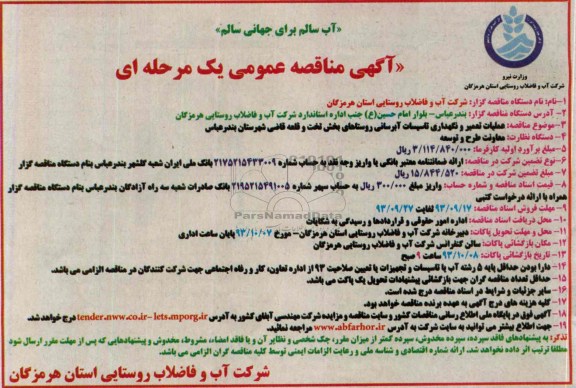 «آب سالم برای جهانی سالم»
«آگهی مناقصه عمومی یک مرحله ای
وزارت نیرو
شرکت آب و فاضلاب روستایی استان هرمزگان
۱-نام: نام دستگاه مناقصه گزار: شرکت آب و فاضلاب روستایی استان هرمزگان
۲- آدرس دستگاه مناقصه گزار: بندرعباس- بلوار امام حسین(ع) جنب اداره استاندارد شرکت آب و فاضلاب روستایی هرمزگان
۳-موضوع مناقصه: عملیات تعمیر و نگهداری تاسیسات آبرسانی روستاهای بخش تخت و قلعه قاضی شهرستان بندرعباس
۴- دستگاه نظارت: معاونت طرح و توسعه
۵-مبلغ برآورد اولیه کارفرما: ۳/۱۱۴/۸۴۰/۰۰۰ ریال
۶- نوع تضمین شرکت در مناقصه: ارائه ضمانتنامه معتبر بانکی یا واریز وجه نقد به حساب شماره ۲۱۷۵۲۱۵۴۳۳۰۰۹ بانک ملی ایران شعبه گلشهر بندرعباس بنام دستگاه مناقصه گزار
۷- مبلغ تضمین شرکت در مناقصه: ۱۵/۸۴۴/۵۲۰ ریال
۸- قیمت اسناد مناقصه و شماره حساب: واریز مبلغ ۳۰۰/۰۰۰ ریال به حساب سپهر شماره ۲۱۹۵۲۱۵۴۹۱۰۰۵ بانک صادرات شعبه سه راه آزادگان بندرعباس بنام دستگاه مناقصه گزار
همراه با ارائه درخواست کتبی
۹- مهلت فروش اسناد مناقصه: ۹۳/۰۹/۱۷ لغایت ۹۳/۰۹/۲۷
۱۰- محل دریافت اسناد مناقصه: اداره امور حقوقی و قراردادها و رسیدگی به شکایات
۱۱- محل و مهلت تحویل پاکات: دبیرخانه شرکت آب و فاضلاب روستایی استان هرمزگان- مورخ ۹۳/۱۰/۰۷ پایان ساعت اداری
۱۲- مکان بازگشائی پاکات: سالن کنفرانس شرکت آب و فاضلاب روستایی هرمزگان
۱۳- تاریخ بازگشائی پاکات: ۹۳/۱۰/۰۸ ساعت ۹ صبح
۱۴- دارا بودن حداقل پایه ۵ رشته آب یا تاسیسات و تجهیزات یا تعیین صلاحیت ۹۳ از اداره تعاون، کار و رفاه اجتماعی جهت شرکت کنندگان در مناقصه الزامی می باشد.
۱۵- حداقل تعداد مناقصه گران جهت بازگشائی پیشنهادات تحویل یک پاکت می باشد.
۱۶- سایر جزئیات و شرایط در اسناد مناقصه درج شده است.
۱۷- کلیه هزینه های درج آگهی به عهده برنده مناقصه خواهد بود.
۱۸- آگهی فوق در پایگاه ملی اطلاع رسانی مناقصات کشور و سایت مناقصه و مزایده شرکت مهندسی آبفای کشور به آدرس tender.nww.co.ir- iets.mporg.ir درج خواهد شد.
۱۹- جهت اطلاع بیشتر می توانید به سایت شرکت به آدرس www.abfarhor.ir مراجعه نمائید.
تذکر: به پیشنهادهای فاقد سپرده، سپرده مخدوش، سپرده کمتر از میزان مقرر، چک شخصی و نظایر آن و یا فاقد امضاء، مشروط، مخدوش و پیشنهادهایی که پس از مهلت مقرر ارسال شود
مطلقا ترتیب اثر داده نخواهد شد. ارائه شماره اقتصادی و شناسه ملی و رعایت الزامات ایمنی توسط کلیه مناقصه گران الزامی می باشد.
شرکت آب و فاضلاب روستایی استان هرمزگان
ParsNamadData